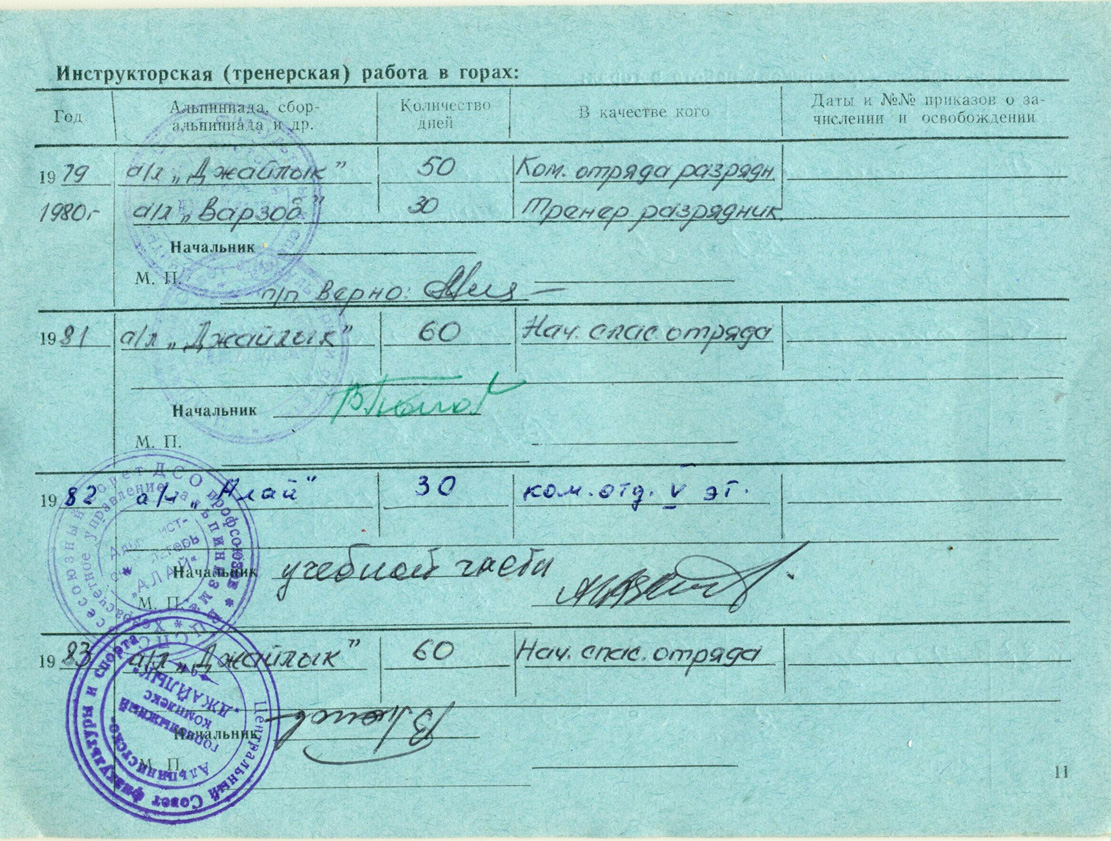 Инструкторская (тренерская) работа в горах:
Год
Альпиниада, сбор-
альпиниада и др.
Количество
дней
В качестве кого
Даты и №№ приказов о за-
числении и освобождении
1979 а/л „Джайлык" 50 Ком. отряда разрядн.
1980г а/л „Варзоб" 30 Тренер разрядник
Начальник
М. П.
п/п Верно:
1981 а/л „Джайлык" 60 Нач. спас. отряда
Начальник
М. П.
1982 а/л „Алай" 30 ком. отд. V эт.
Начальник учебной части
М. П.
1983 а/л „Джайлык" 60 Нач. спас. отряда
Начальник
М. П.
ДСО профсоюзов
"АЛАЙ"
Центральный Совет физкультуры и спорта
Альпинистско-
горнолыжный
комплекс
"ДЖАЙЛЫК"
11